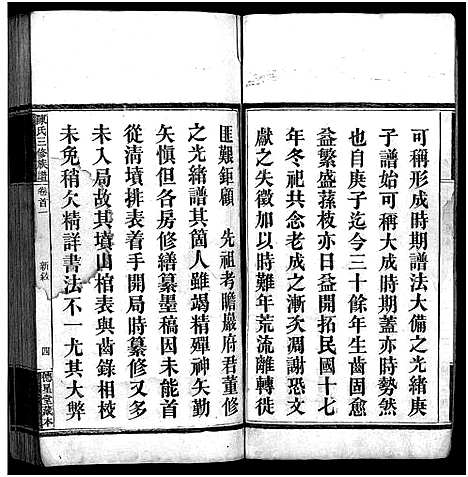 可稱形成時期譜法大備之光緒庚
子譜始可稱大成時期蓋亦時勢然
也自庚子迄今三十餘年生齒固愈
益繁盛蓀枝亦日益開拓民國十七
年冬祀共念老成之漸次凋謝恐文
獻之失徵加以時難年荒流離轉徙
匪艱鉅顧 先祖考瞻巖府君董修
之光緒譜其箇人雖竭精殫神矢勤
矢慎但各房修繕纂墨稿因未能首
從清墳排表着手開局時纂修又多
未入局故其墳山棺表與齒錄相校
未免稍欠精詳書法不一尤其大弊
陳氏三修族譜 卷首一 新敘 四 德星堂藏本